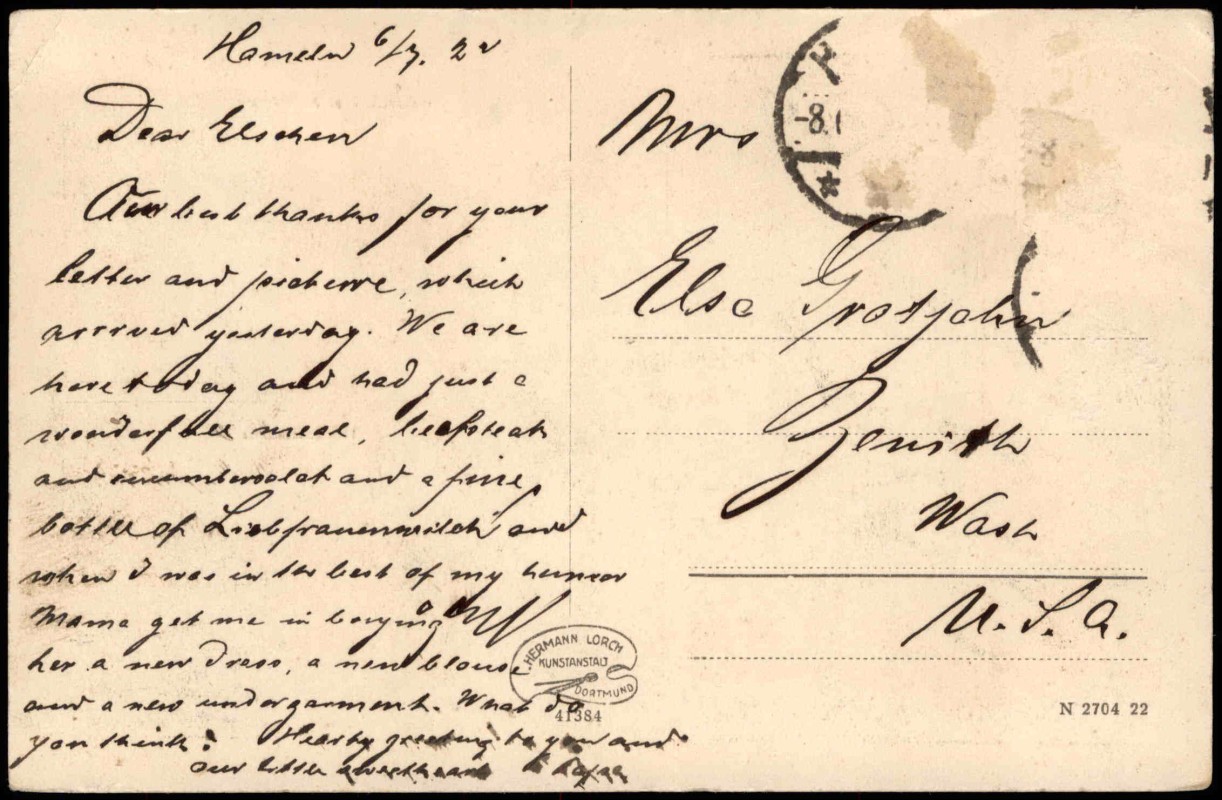 Hameln 6/7. 22
Dear Elschen
Our best thanks for your
letter and picterre, which
arrived yesterday. We are
here today and had just a
wonderfull meal, beefsteak
and cucumbersalat and a fine
bottle of Liebfrauenmilch and
when I was in the best of my humor
Mama get me in buying
her a new dress, a new blouse
and a new undergarment. What do
you think? Hearty greeting to you and
our little sweetheart
Mrs
Else Grotjohn
Zenith
Wash
U.S.A.
-8.
F. HERMANN LORCH
KUNSTANSTALT
DORTMUND
41384
N 2704 22